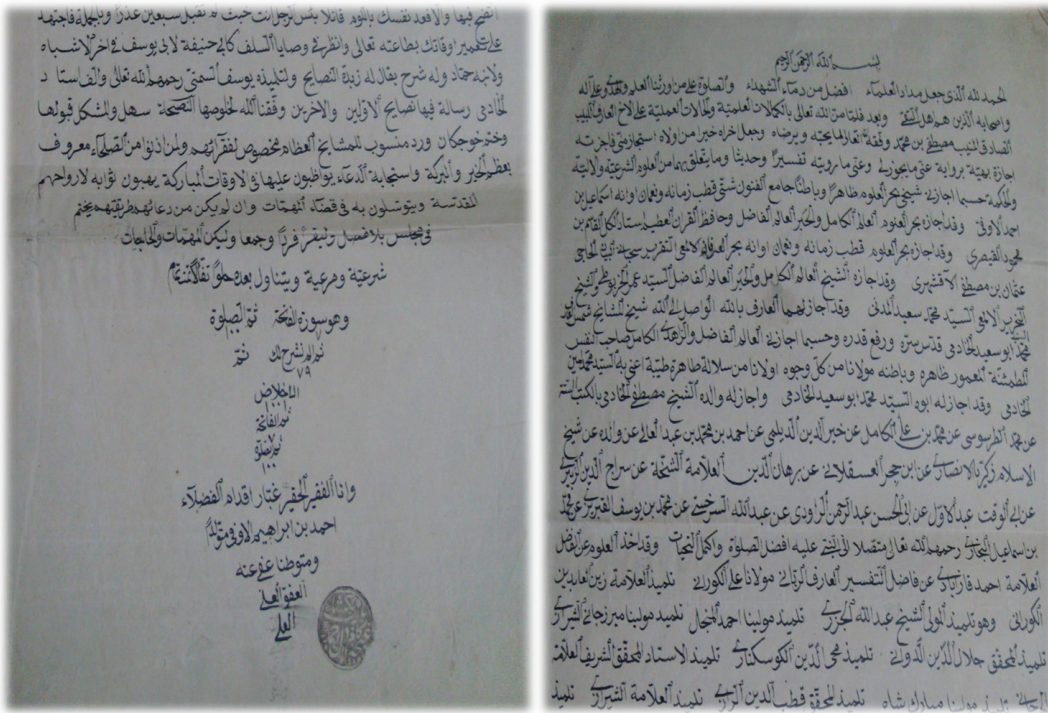 بسم الله الرحمن الرحيم
الحمد لله الذى جعل مداد العلماء افضل من دماء الشهداء والصلوة على من اورثنا العلم وعلى آله
واصحابه الذين هم اهل وبعد فلما من الله تعالى بالكمالات العلمية والحالات العملية على الاخ العارف اللبيب
مصطفى بن محمد وفقه الله تعالى لما يحبه ويرضاه وجعل اخراه خيرا من اولاه استجازنى فاجزته
اجازة بهية برواية عنى ما يجوز لى وعنى ما رويته تفسيرا وحديثا وما يتعلق بهما من العلوم الشرعية والآلية
والحكمية حسبما اجازنى شيخى بحر العلوم ظاهرا وباطنا جامع الفنون شتى قطب زمانه ونعمان اوانه اسماعيل بن
احمد الاوفى وقد اجازه بحر العلوم العالم الكامل والحبر العالم الفاضل وحافظ القرآن العظيم استاد الكل القاسم بن
محمود القيصرى وقد اجازه بحر العلوم قطب زمانه ونعمان اوانه بحر العرفان الحاجى
عثمان بن مصطفى الآقشهرى وقد اجازه الشيخ العالم الكامل والحبر العالم الفاضل السيد عمر والشيخ
النحرير الالمعى السيد محمد سعيد المدنى وقد اجازهما العارف بالله الواصل الى الله شيخ المشايخ
محمد ابو سعيد الخادمى قدس سره ورفع قدره وحسبما اجازنى العالم الفاضل والزاهد الكامل صاحب النفس
المطمئنة المعمور ظاهره وباطنه مولانا من كل وجوه اولانا من سلالة طاهرة طيبة اعنى به السيد محمد امين
الخادمى وقد اجاز له ابوه السيد محمد ابو سعيد الخادمى واجاز له والده الشيخ مصطفى الخادمى بالكتب الستة
عن محمد الطرسوسى عن محمد بن على الكامل عن خير الدين الديلمى عن احمد بن محمد بن عبد العالى عن والده عن شيخ
الاسلام زكريا الانصارى عن ابن حجر العسقلانى عن برهان الدين العلامة الشحنة عن سراج الدين الزبيدى
عن ابى الوقت عبد الاول عن ابى الحسن عبد الرحمن الداودى عن عبد الله السرخسى عن محمد بن يوسف الفربرى عن محمد
بن اسماعيل البخارى رحمهم الله تعالى متصلا الى النبى عليه افضل الصلوة واكمل التحيات وقد اخذ العلوم عن الفاضل
العلامة احمد قازابادى عن فاضل التفسير العارف الربانى مولانا على الكورانى تلميذ العلامة زين العابدين
الكورانى وهو تلميذ المولى الشيخ عبد الله الجزرى تلميذ مولينا احمد المنجال تلميذ مولينا ميرزجانى الشيرازى
تلميذ المحقق جلال الدين الدوانى تلميذ محى الدين الكوسكنارى تلميذ الاستاد المحقق الشريف العلامة
الجرجانى تلميذ مولينا مبارك شاه تلميذ المحقق قطب الدين الرازى تلميذ العلامة الشيرازى تلميذ
انضح فيها والا فعد نفسك باللوم قائلا بئس الرجل انت حيث لم تقبل سبعين عذرا وبالجملة فاجتهد
على تعمير اوقاتك بطاعته تعالى وانظر فى وصايا السلف كابى حنيفة لابى يوسف فى اخر الاشباه
ولابنه حماد وله شرح يقال له زبدة النصايح ولتلميذه يوسف السمتى رحمهم الله تعالى والف استاد
الخادمى رسالة فيها نصايح الاولين والاخرين وفقنا الله لخلوصها النصيحة سهل والمشكل قبولها
وختم خوجكان ورد منسوب للمشايخ العظام مخصوص لفقرائهم ولمن اذنوا من الصلحاء معروف
بعظم الخير والبركة واستجابة الدعاء يواظبون عليها فى الاوقات المباركة يهبون ثوابه لارواحهم
المقدسة ويتوسلون به فى قضاء المهمات وان لم يكن من دعائهم طريقتهم يختم
فى مجلس بلا فصل وليقرء فردا وجمعا وليكن المهمات والحاجات
شرعية ومرعية ويتناول بعده حلوى
وهو سورة الفاتحة ثم الصلوة
ثم الم نشرح لك ثم
٧٩
الاخلاص
١٠٠١
ثم الفاتحة
٧
ثم الصلوة
١٠٠
وانا الفقير الحقير غبار اقدام الفضلاء
احمد بن ابراهيم الاوفى مولدا
وموطنا عفى عنه
العفو العلى
العلى